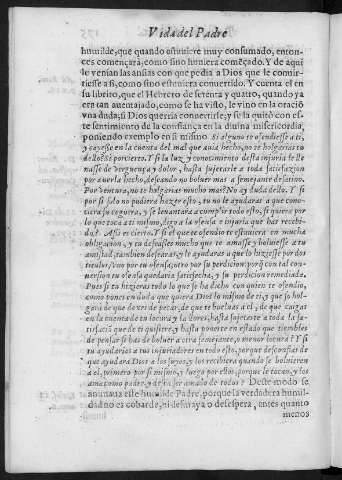 Vida del Padre
humilde, que quando estuuiere muy consumado, enton-
ces començarà, como sino huuiera começado. Y de aqui
le venian las ansias con que pedia a Dios que le conuir-
tiesse a si, como sino estuuiera conuertido. Y cuenta el en
su librito, que el Hebrero de setenta y quatro, quando ya
era tan auentajado, como se ha visto, le vino en la oraciõ
vna duda, si Dios querria conuertirle, y se la quitò con es-
te sentimiento de la confiança en la diuina misericordia,
poniendo exemplo en si mismo. Si alguno te ofendiesse a ti,
y cayesse en la cuenta del mal que auia hecho, no te holgarias tu
dello? Si por cierto. Y si la luz, y conocimiento desta injuria le lle-
nasse de verguença y dolor, hasta sujetarse a toda satisfacion
por auerla hecho, deseando no boluer mas a semejante desatino.
Por ventura, no te holgarias mucho mas? No ay duda dello. Y si
por si solo no pudiera hazer esto, tu no le ayudaras a que cono-
ciera su ceguera, y se leuantara a cumplir todo esto, si quiera por
lo que toca a ti mismo, digo a la ofensa e injuria que has recibi-
do? Assi es cierto. Y si el que te ofendio te estuuiera en mucha
obligacion, y tu deseasses mucho que te amasse y boluiesse a tu
amistad, tambien desearas, y le ayudaras a que lo hiziesse por dos
titulos, vno por tu ofensa, y otro por su perdicion, porq̃ con tal con-
uersion tu ofensa quedaria satisfecha, y su perdicion remediada.
Pues si tu hizieras todo lo que se ha dicho con quien te ofendio,
como pones en duda que quiera Dios lo mismo de ti, y que se hol-
garà de que dexes de pecar, de que te bueluas a el, de que caigas
en la cuenta de tu locura y la llores, hasta sujetarte a toda la sa-
tisfaciõ que de ti quisiere, y hasta ponerte en estado que tiembles
de pensar si has de boluer a otra semejante, o menor locura? Y si
tu ayudarias a tus injuriadores en todo esto, porque desconfias de
que ayudarà Dios a los suyos, y los recebirà quando se boluieren
a el, primero por si mismo, y luego por ellos, porque le tocan, y los
ama como padre, y desea ser amado de todos? Deste modo se
animaua este humilde Padre, porque la verdadera humil-
dad no es cobarde, ni desmaya o desespera, antes quanto
menos